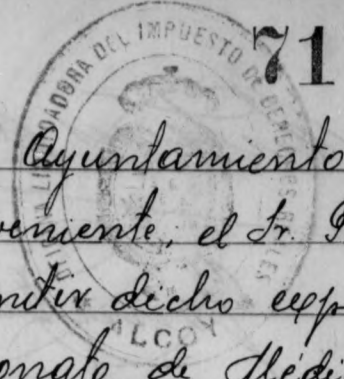 71
OFICINA LIQUIDADORA DEL IMPUESTO DE DERECHOS REALES
ALCOY
Ayuntamiento
veniente, el Sr. P
mitir dicho exp
onato de Médi